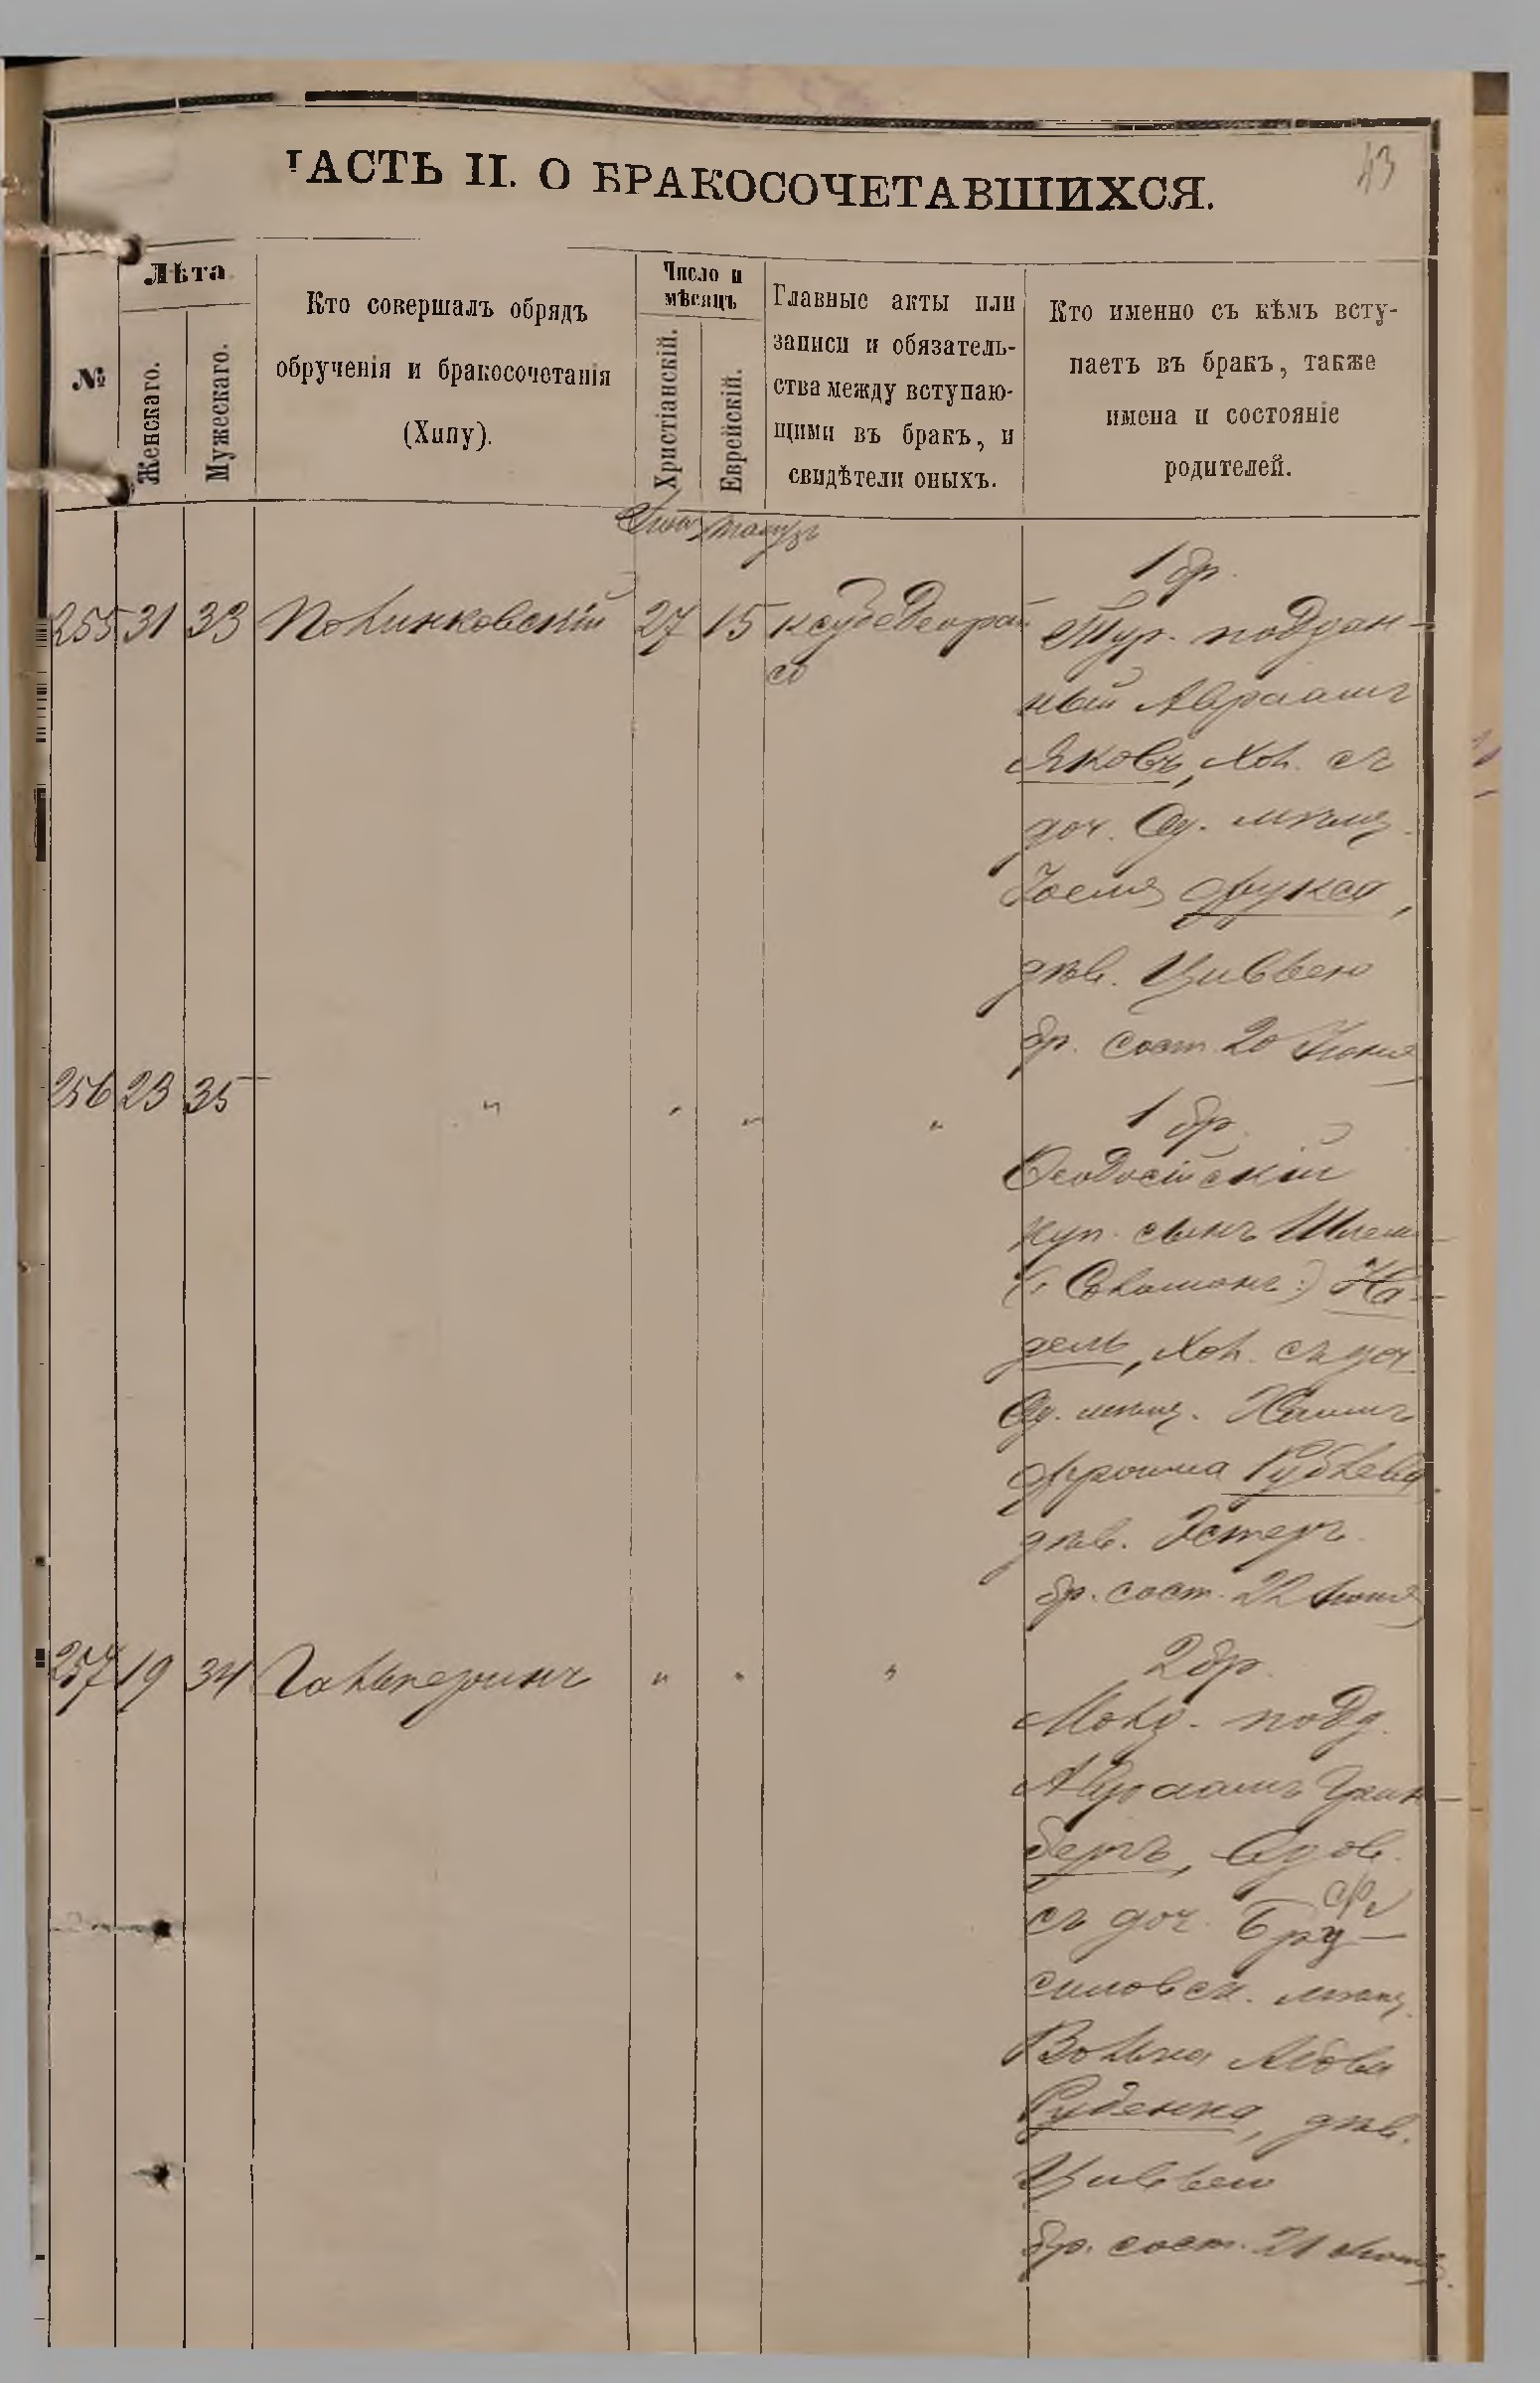 43
ЧАСТЬ II. О БРАКОСОЧЕТАВШИХСЯ.
№
Лѣта
Женскаго.
Мужескаго.
Кто совершалъ обрядъ
обрученія и бракосочетанія
(Хипу).
Число и
мѣсяцъ
Христіанскій.
Еврейскій.
Главные акты или
записи и обязатель-
ства между вступаю-
щими въ бракъ, и
свидѣтели оныхъ.
Кто именно съ кѣмъ всту-
паетъ въ бракъ, также
имена и состояніе
родителей.
255 31 33 Полинковскій 27 15
1 бр.
Тур. поддан-
ный Авраамъ
Яковъ, хол. съ
доч. Од. мѣщ.
Іоеля Фукса,
дѣв. Цивьею
бр. сост. 20 Іюня
256 23 35 " " " "
1 бр.
Ѳеодосійскій
куп. сынъ Шлема
(: Соломонъ :) На-
дель, хол. съ доч.
Од. мѣщ. Хаимъ
Фроима Рублева
дѣв. Эстеръ
бр. сост. 22 Іюня
257 19 34 Гальперинъ " " "
2 бр.
Молд. подд.
Авраамъ Грин-
бергъ, вдов.
съ доч. Бру-
силовск. мѣщ.
Волька Лбова
Руденка, дѣв.
Цивьею
бр. сост. 21 Іюня